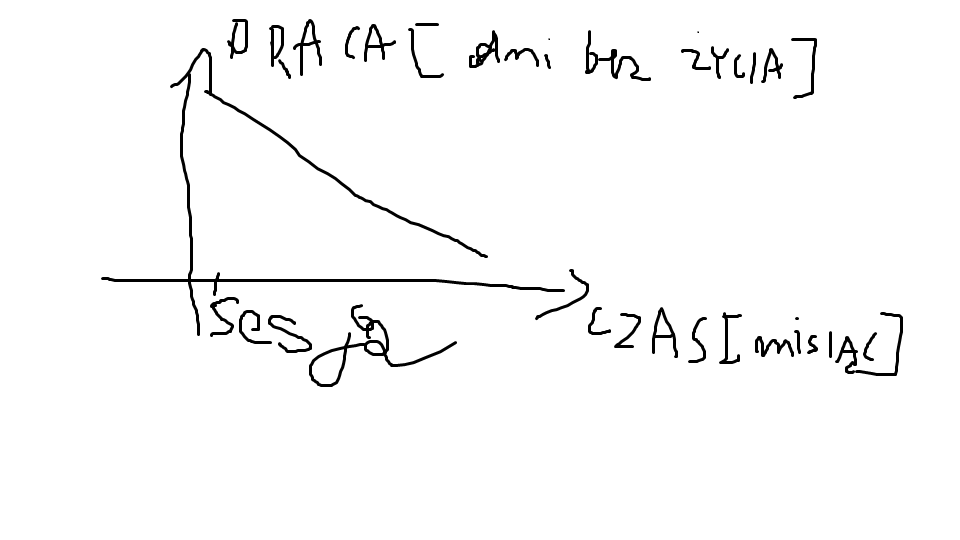 PRACA [dni bez ŻYCIA]
sesja
CZAS [misiąc]